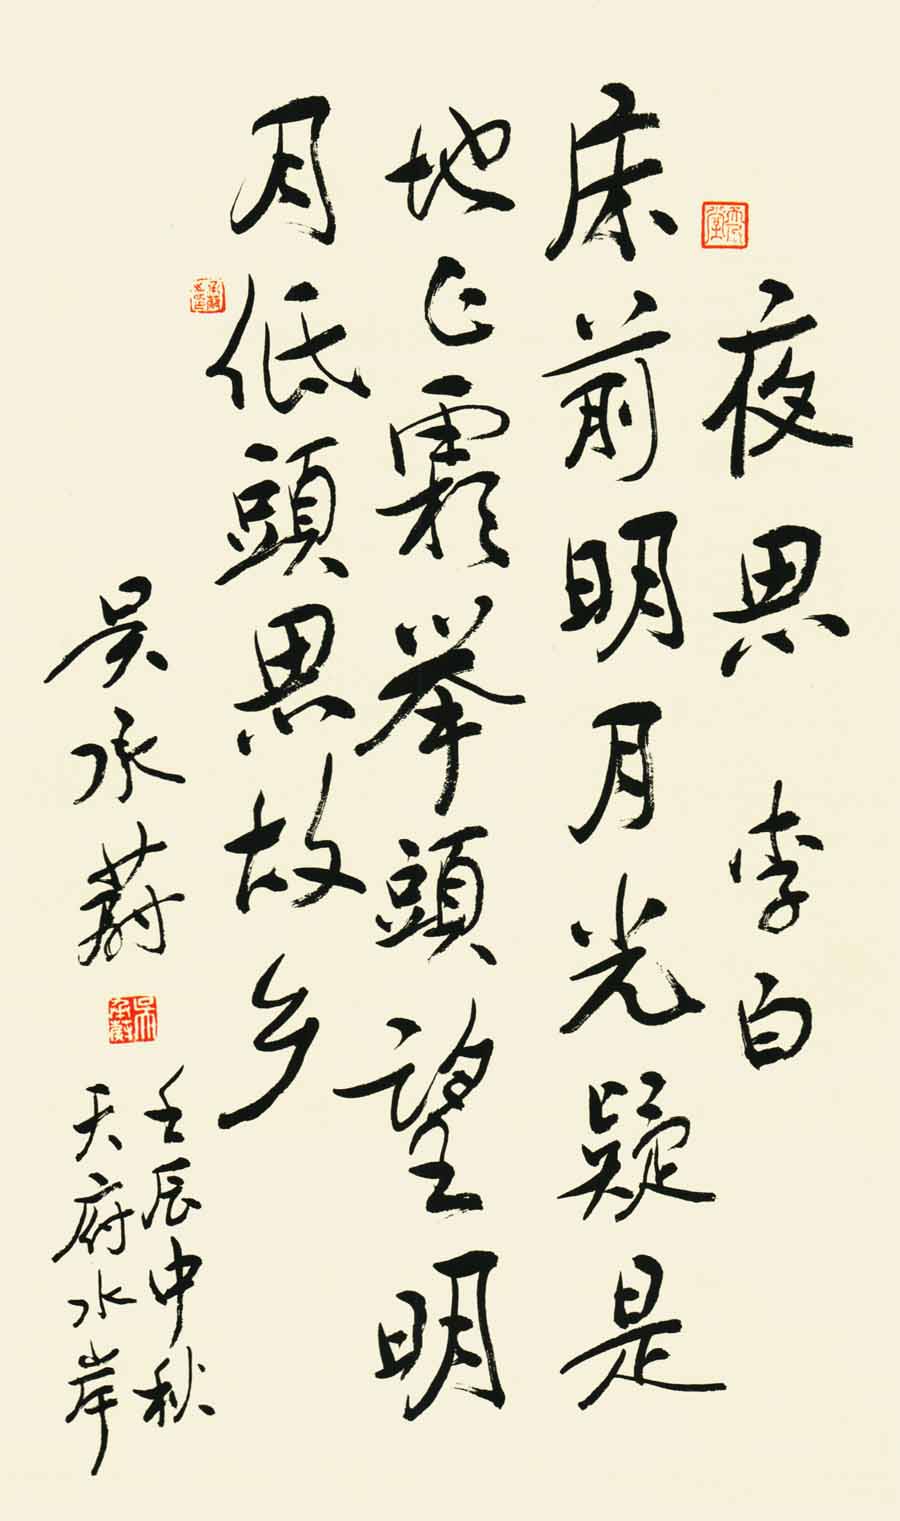 夜思 李白
床前明月光疑是
地上霜举頭望明
月低頭思故乡
吴承蔚
壬辰中秋
天府水岸